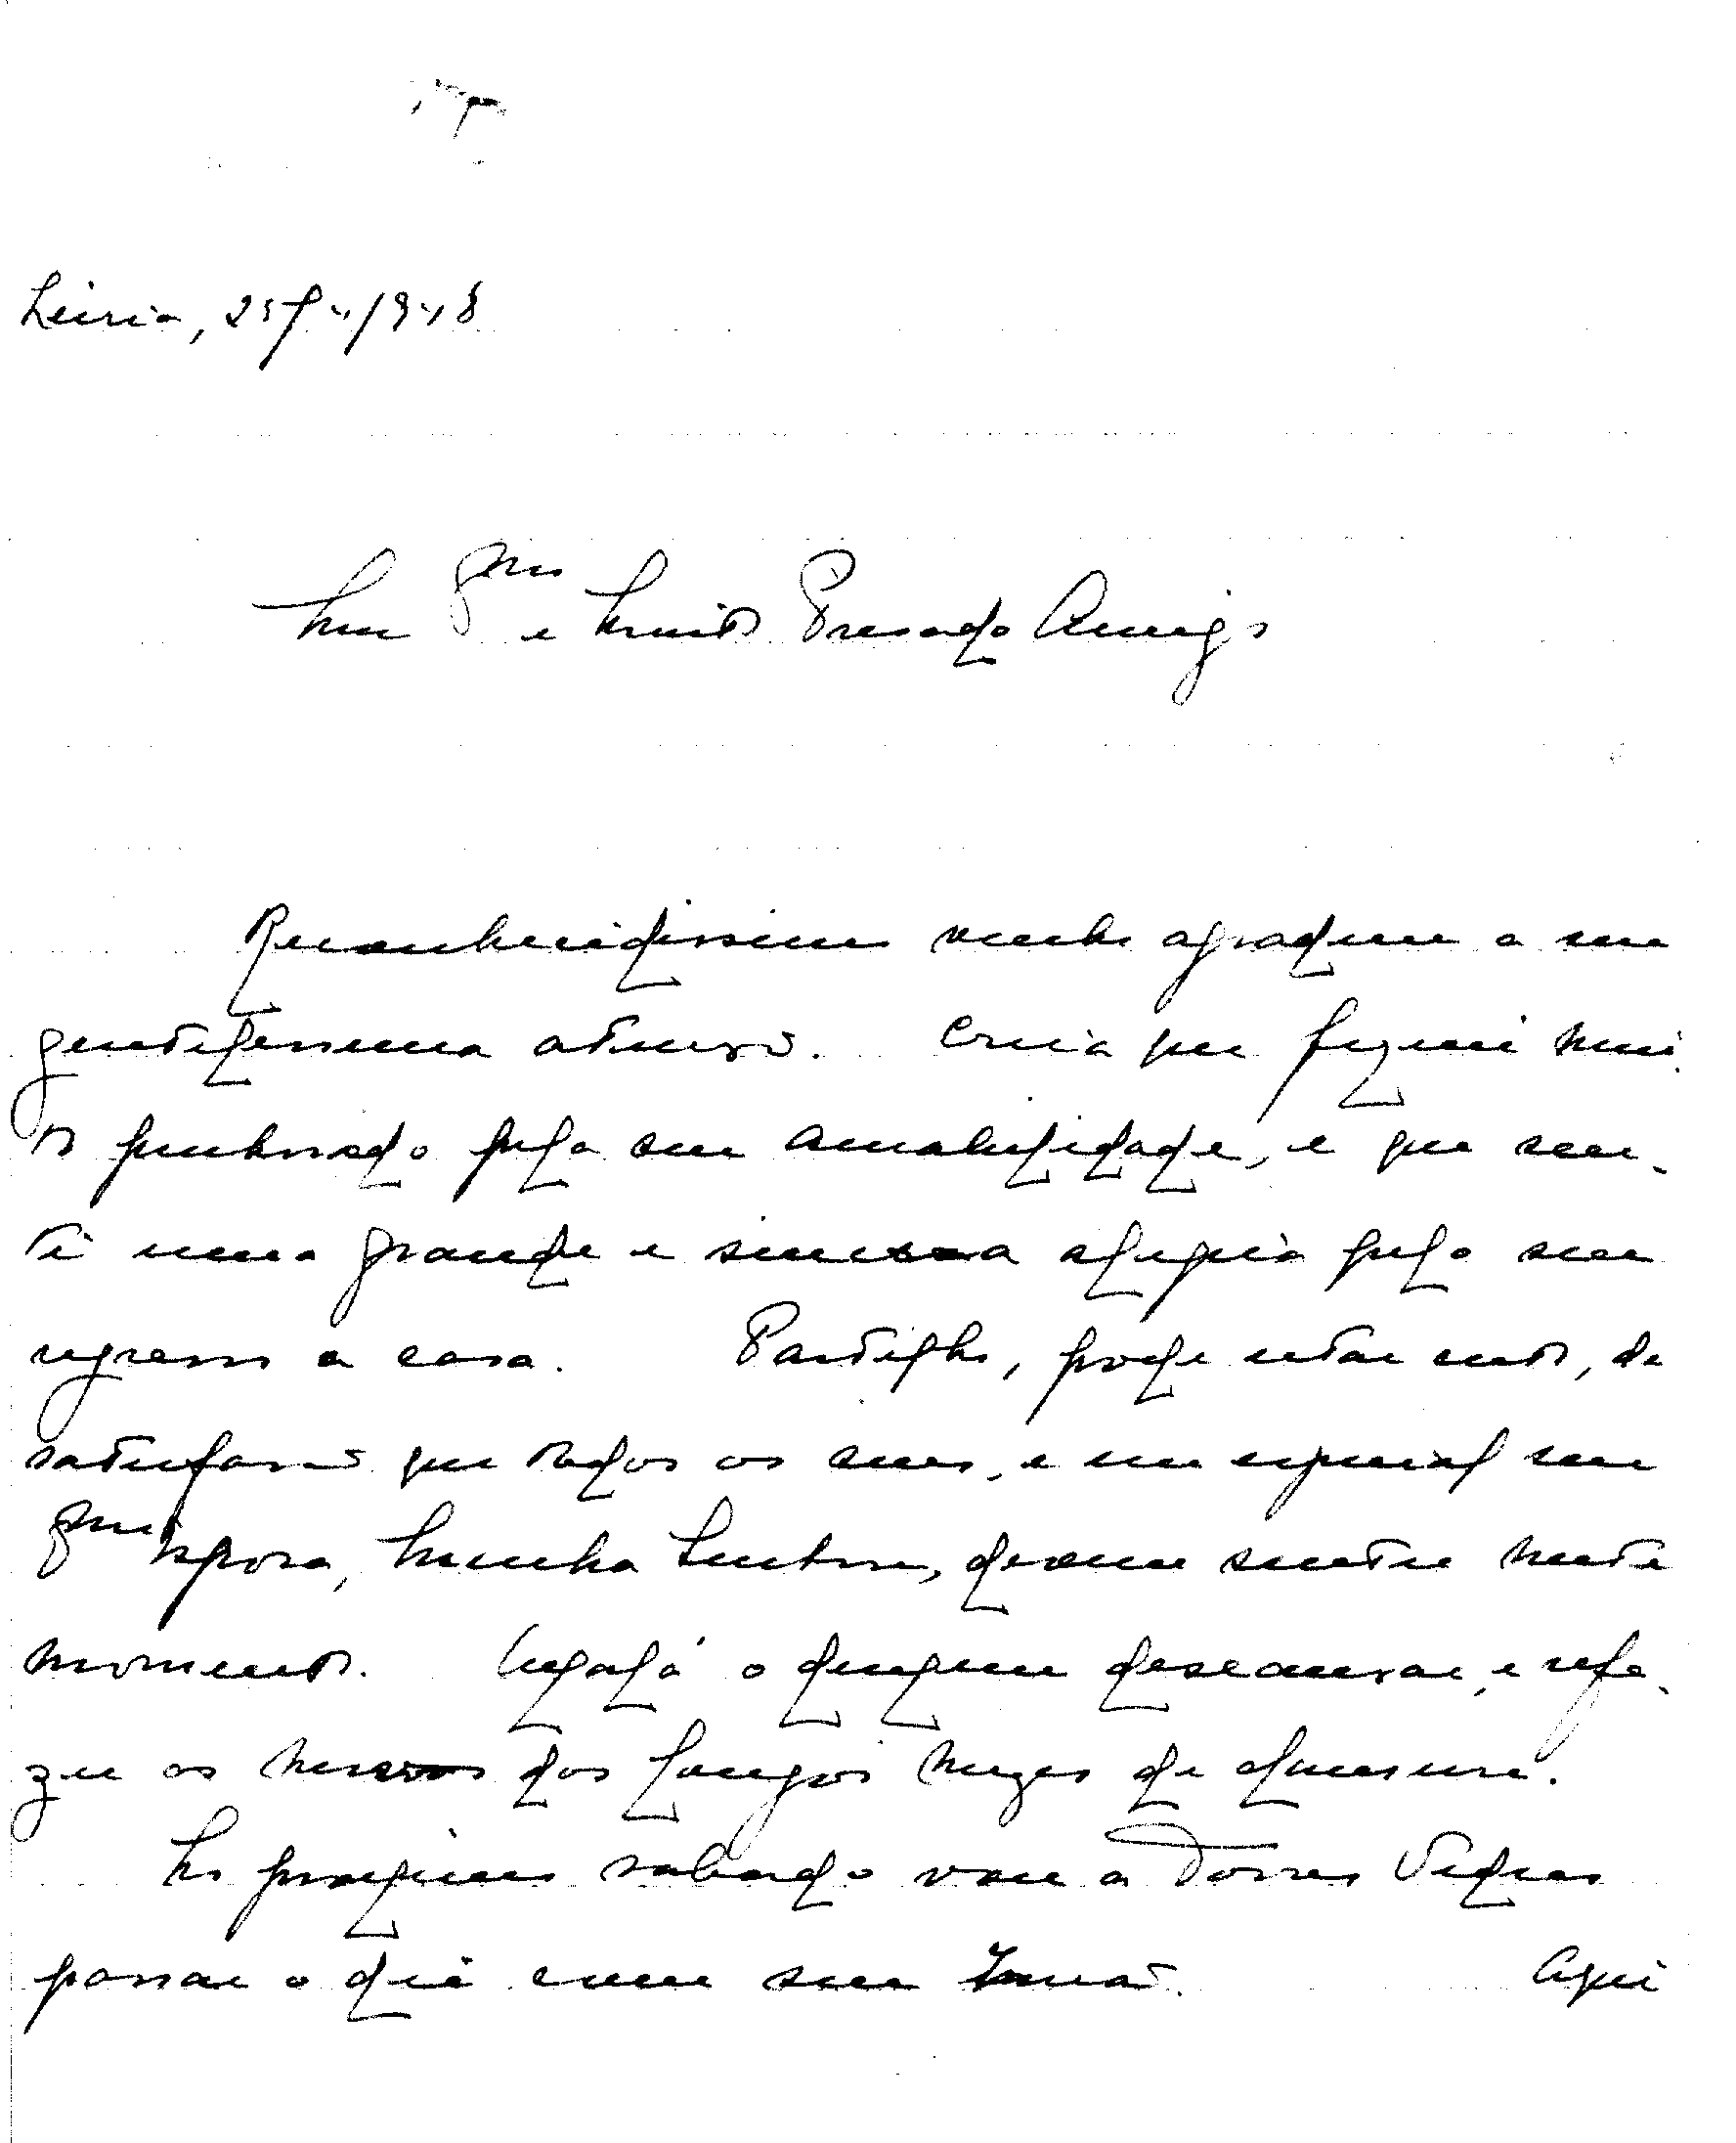 Leiria, 25/4/948
Meu Exmo e Muito Presado Amigo
Reconhecidissimo venho agradecer a sua
gentilissima atenção. Creia que fiquei mui-
to penhorado pela sua amabilidade, e que sen-
ti uma grande e sincera alegria pelo seu
regresso a casa. Partilho, pode estar certo, da
satisfação que todos os seus, e em especial sua
Exma Esposa, Minha Senhora, devem sentir neste
momento. Oxalá o deixem descansar, e refa-
zer os nervos dos longos mezes de clausura.
No proximo sabado vou a Torres Vedras
passar o dia com seu Irmão. Aqui